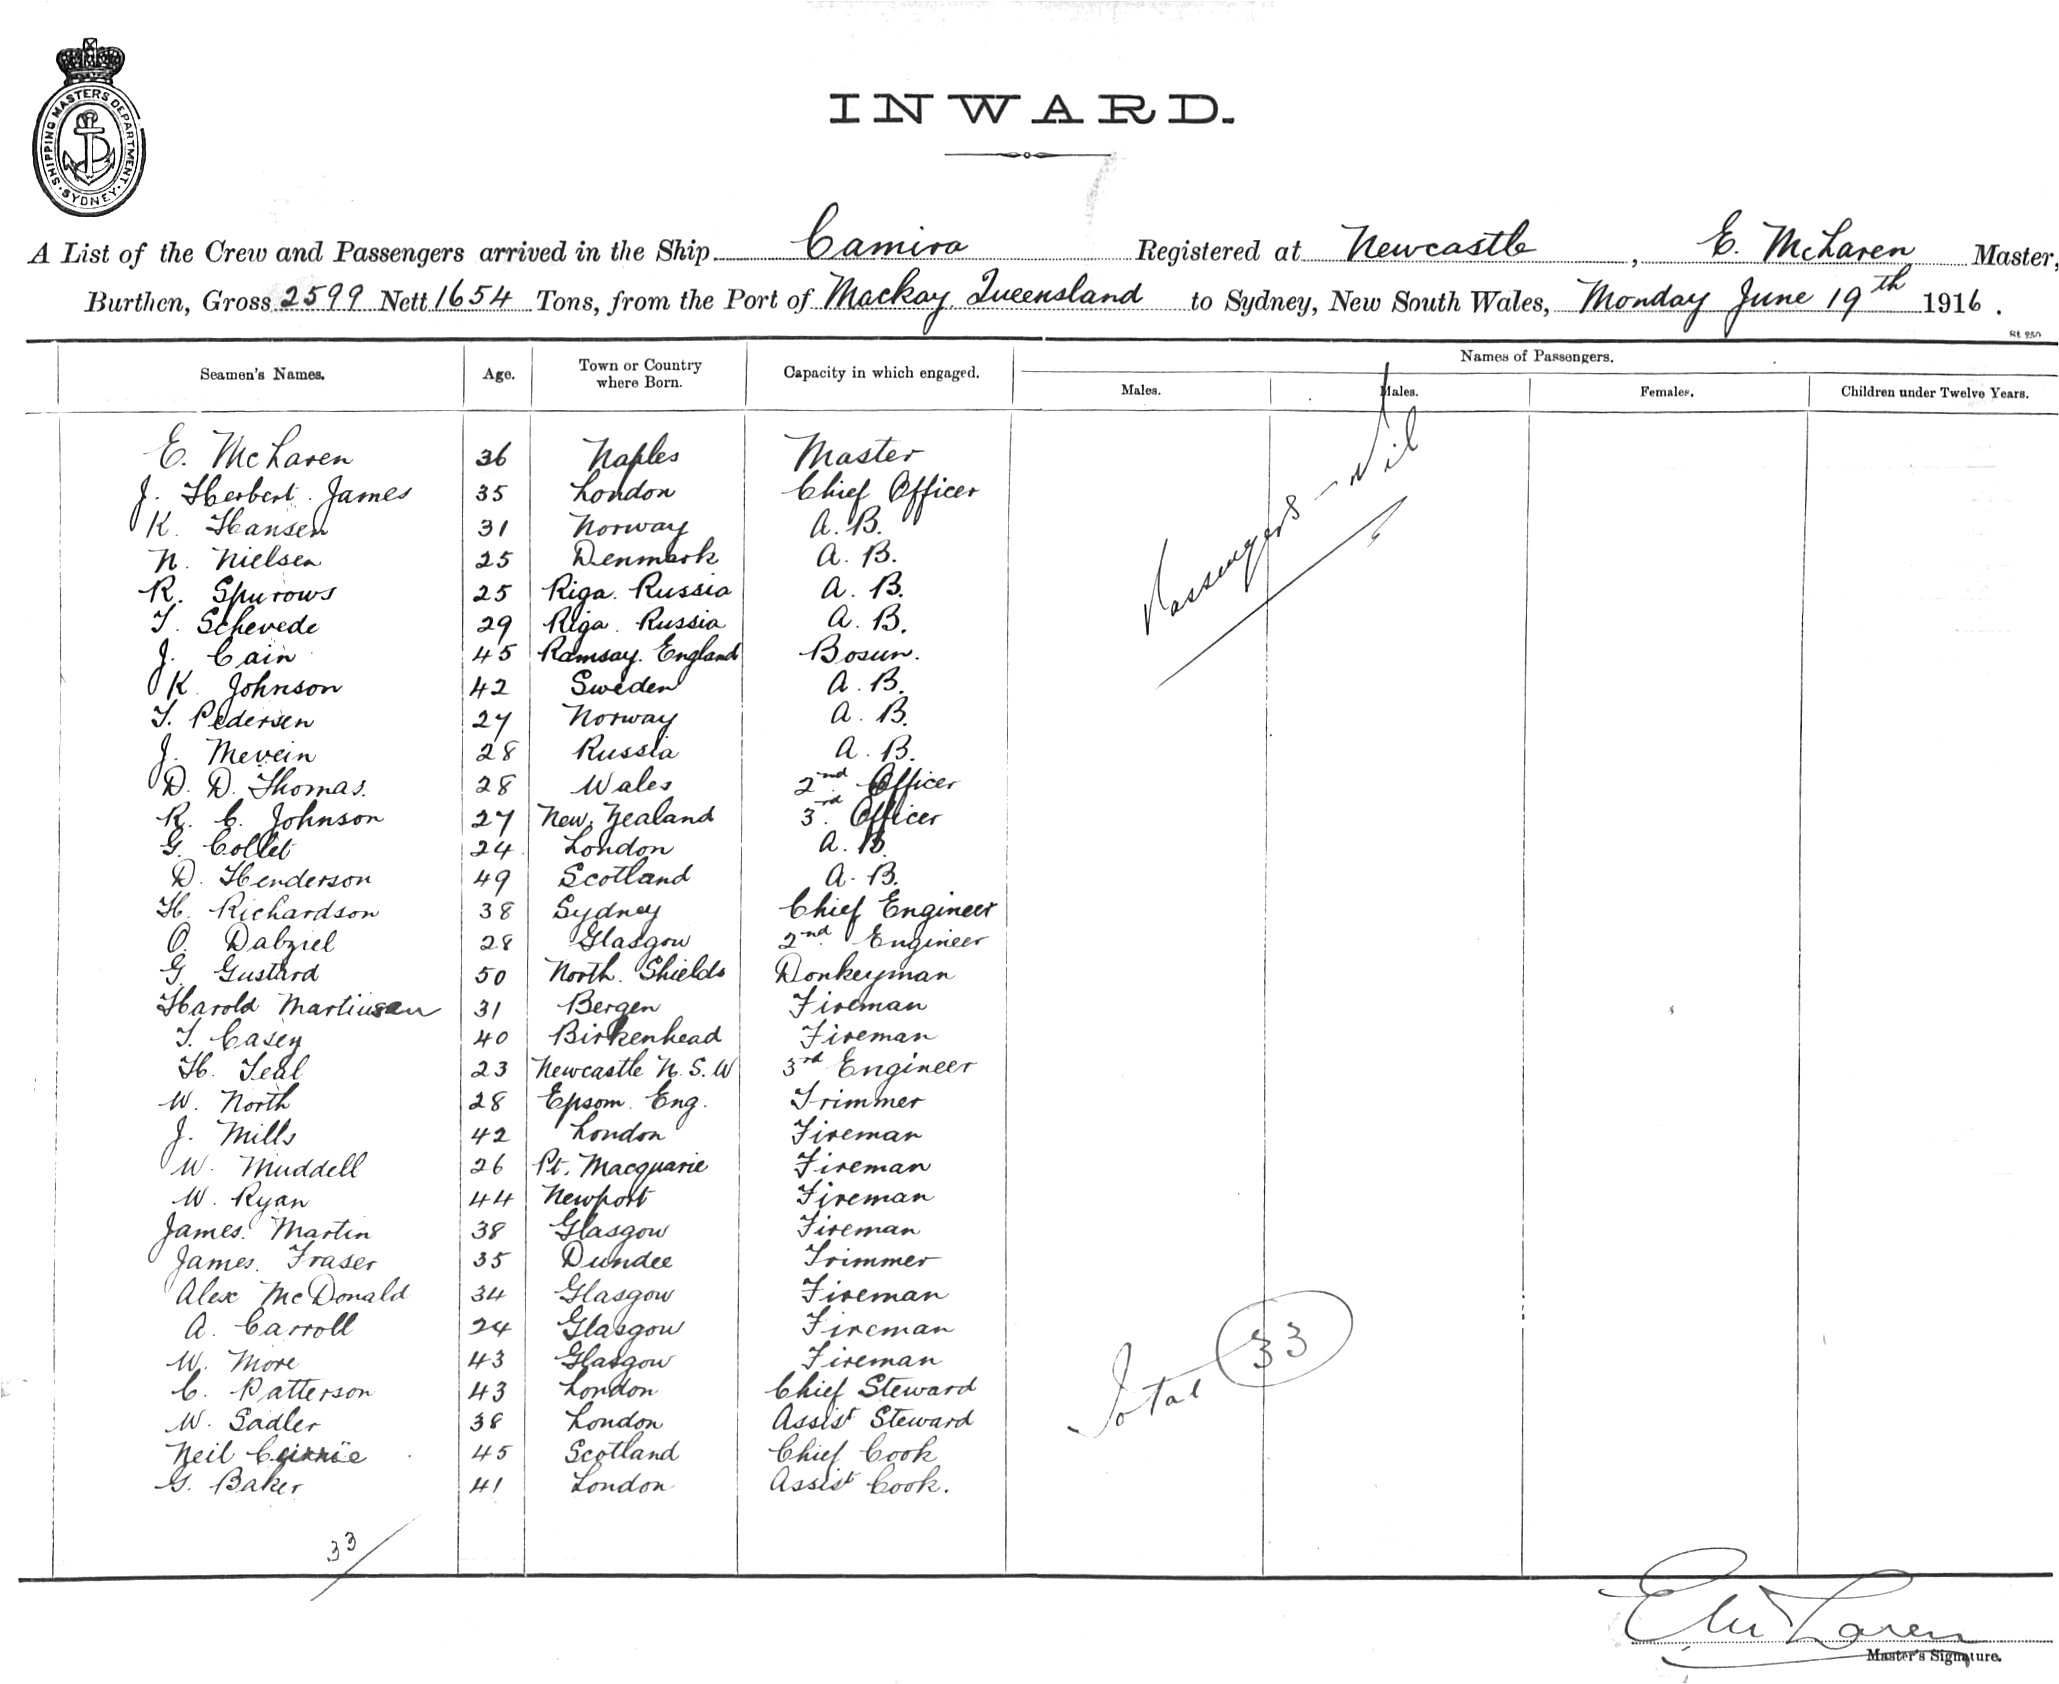 SHIPPING MASTERS DEPARTMENT. SYDNEY.
INWARD.
A List of the Crew and Passengers arrived in the Ship Camira Registered at Newcastle, E. McLaren Master,
Burthen, Gross 2599 Nett 1654 Tons, from the Port of Mackay. Queensland to Sydney, New South Wales, Monday June 19th 1916.
St 250
Seamen's Names. Age. Town or Country where Born. Capacity in which engaged. Names of Passengers.
Males. Males. Females. Children under Twelve Years.
E. McLaren 36 Naples Master
J. Herbert. James 35 London Chief Officer
K. Hansen 31 Norway A.B.
N. Nielsen 25 Denmark A. B.
R. Spurows 25 Riga. Russia A. B.
T. Schevede 29 Riga. Russia A. B.
J. Cain 45 Ramsay. England Bosun.
K. Johnson 42 Sweden A. B.
T. Pedersen 27 Norway A. B.
J. Mevein 28 Russia A. B.
D. D. Thomas. 28 Wales 2nd Officer
R. C. Johnson 27 New Zealand 3rd Officer
G. Collet 24 London A. B.
D. Henderson 49 Scotland A. B.
H. Richardson 38 Sydney Chief Engineer
O. Dalziel 28 Glasgow 2nd Engineer
G. Gustard 50 North. Shields Donkeyman
Harold Martinsen 31 Bergen Fireman
T. Casey 40 Birkenhead Fireman
H. Teal 23 Newcastle N.S.W 3rd Engineer
W. North 28 Epsom. Eng. Trimmer
J. Mills 42 London Fireman
W. Muddell 26 Pt. Macquarie Fireman
W. Ryan 44 Newport Fireman
James. Martin 38 Glasgow Fireman
James. Fraser 35 Dundee Trimmer
Alex McDonald 34 Glasgow Fireman
A. Carroll 24 Glasgow Fireman
W. More 43 Glasgow Fireman
C. Patterson 43 London Chief Steward
W. Sadler 38 London Assist Steward
Neil Currie 45 Scotland Chief Cook
G. Baker 41 London Assist Cook.
Passengers - Nil
Total 33
33
E McLaren
Master's Signature.